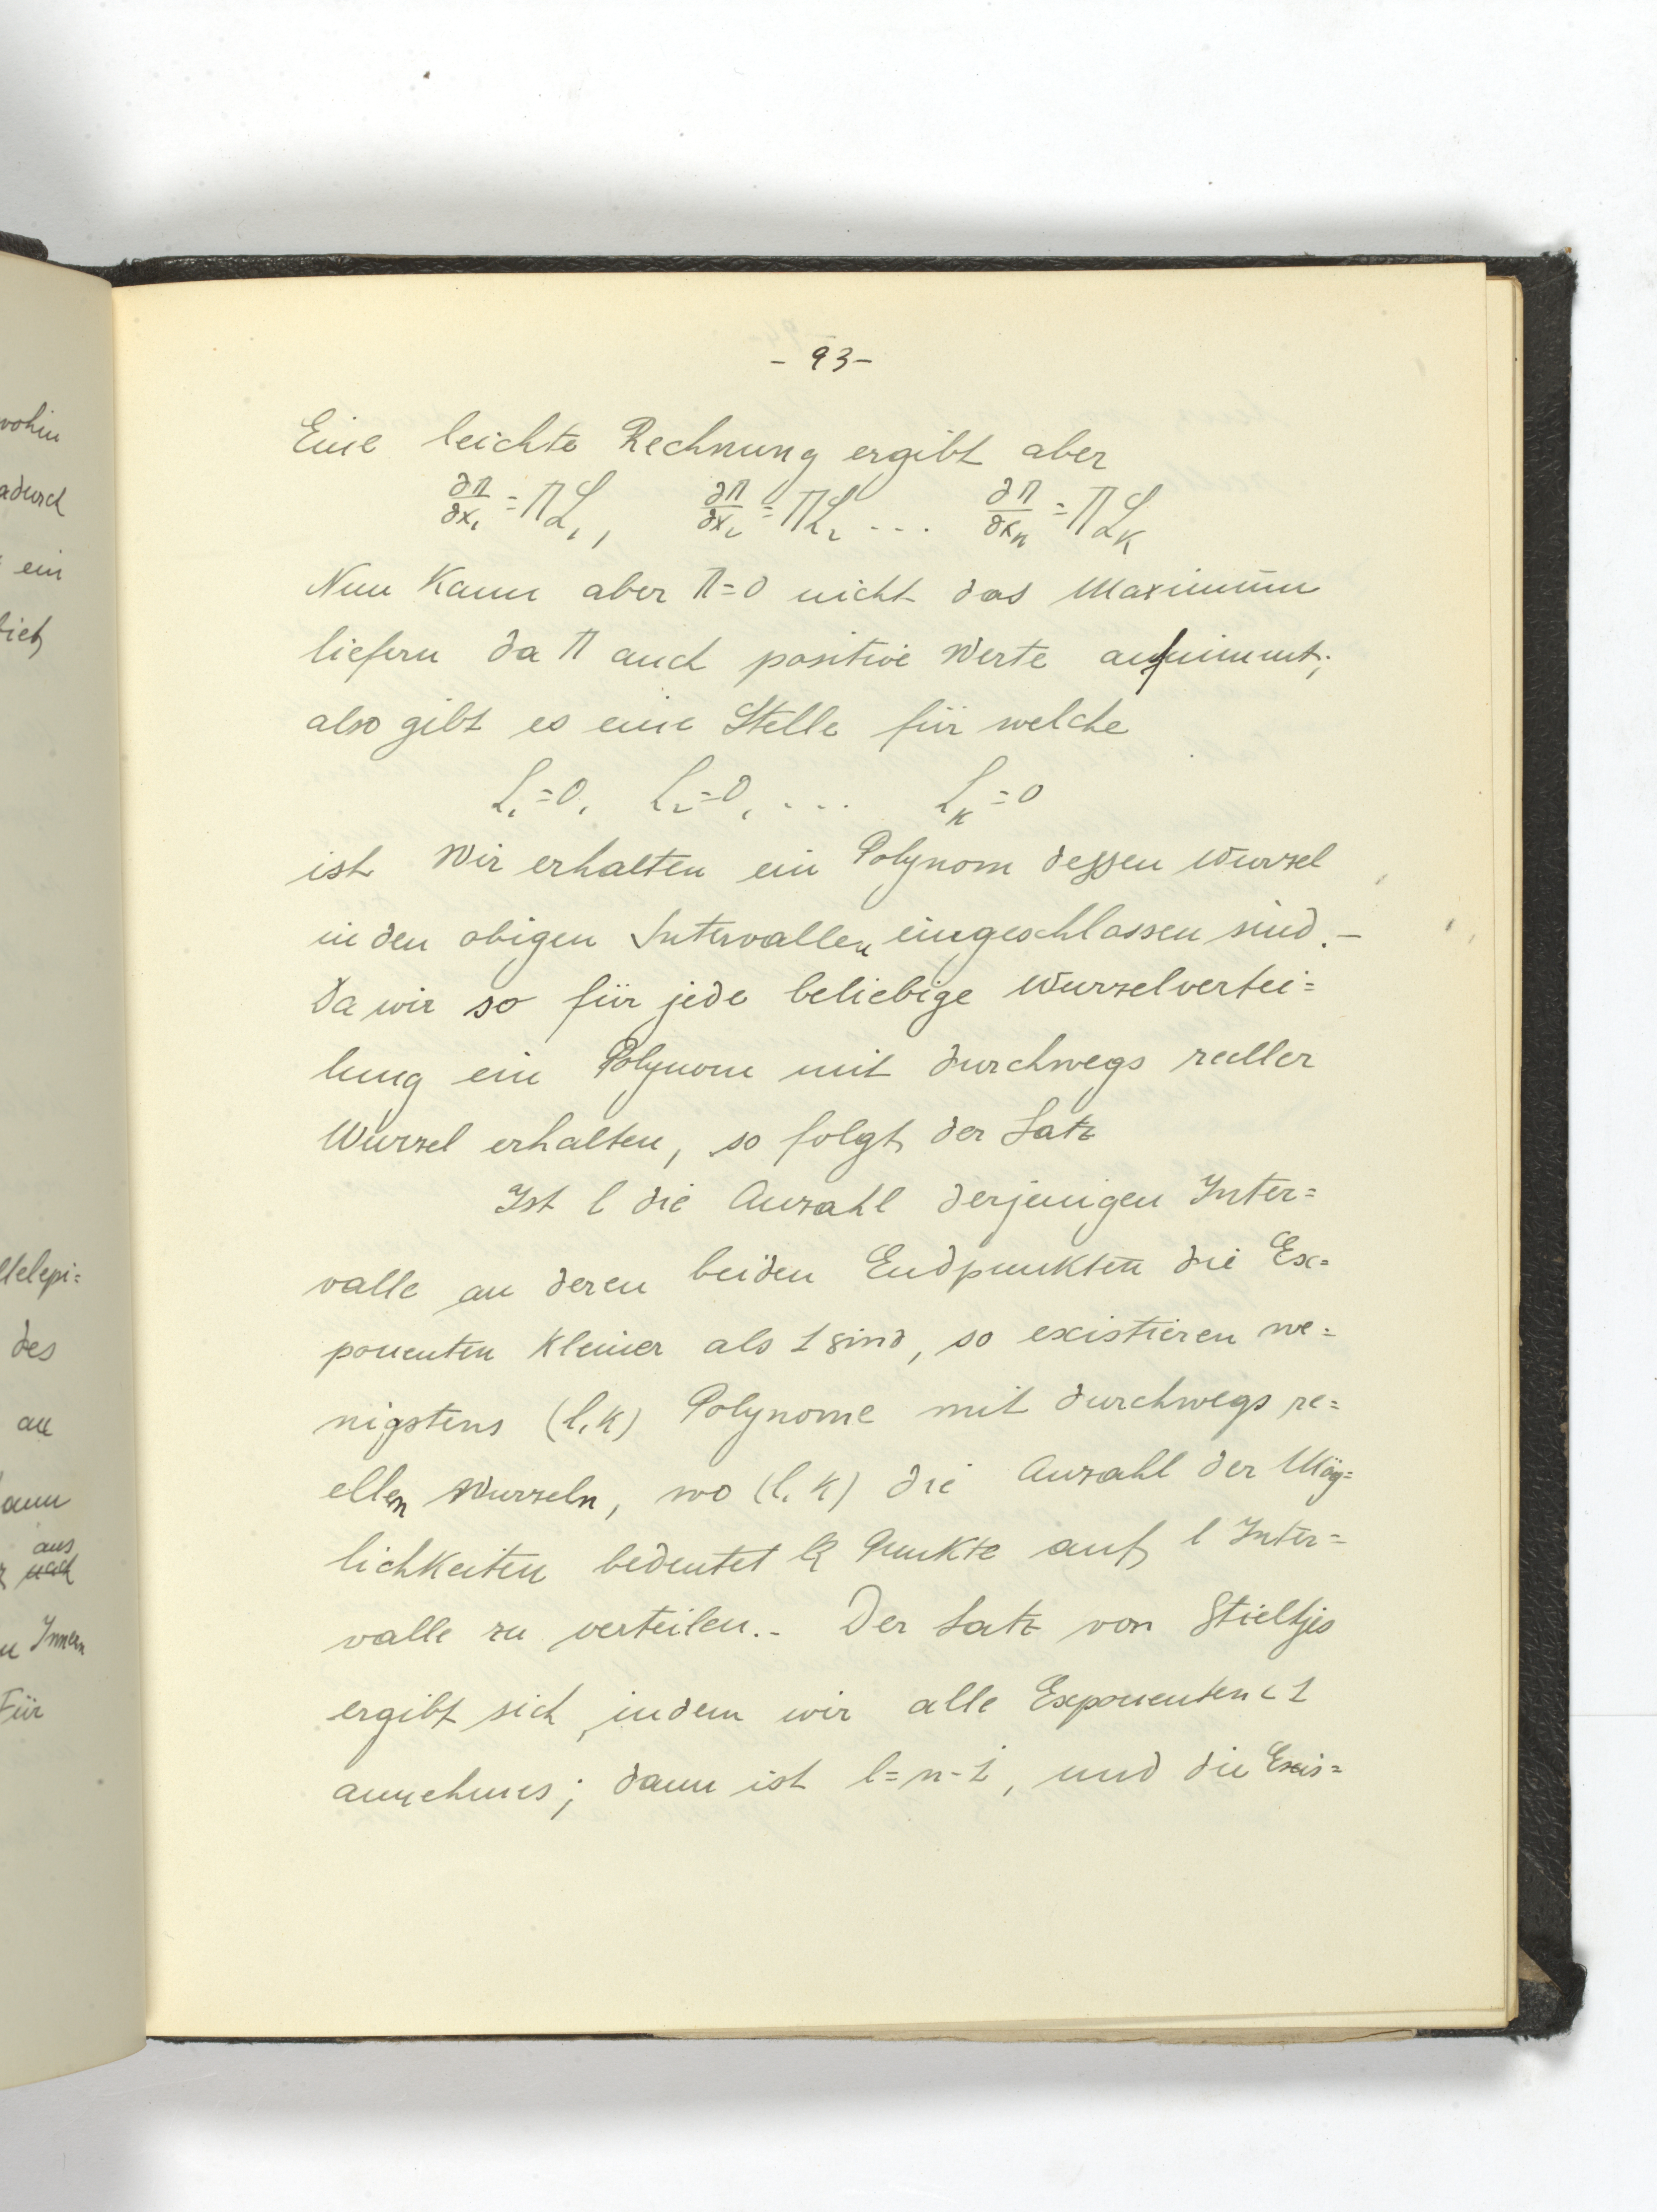 - 93 -
Eine leichte Rechnung ergibt aber
∂Π/∂x₁ = ΠL₁, ∂Π/∂x₂ = ΠL₂ ... ∂Π/∂xₖ = ΠLₖ
Nun kann aber Π=0 nicht das Maximum
liefern da Π auch positive Werte annimmt;
also gibt es eine Stelle für welche
L₁=0, L₂=0, ... Lₖ=0
ist Wir erhalten ein Polynom dessen Wurzel
in den obigen Intervallen eingeschlossen sind. –
Da wir so für jede beliebige Wurzelvertei=
lung ein Polynom mit durchwegs reller
Wurzel erhalten, so folgt der Satz
Ist l die Anzahl derjenigen Inter=
valle an deren beiden Endpunkten die Ex=
ponenten kleiner als 1 sind, so existieren we=
nigstens (l,k) Polynome mit durchwegs re=
ellen Wurzeln, wo (l,k) die Anzahl der Mög=
lichkeiten bedeutet k Punkte auf l Inter=
valle zu verteilen. - Der Satz von Stieltjes
ergibt sich, indem wir alle Exponenten < 1
annehmes; dann ist l=n-1, und die Exis=
wohin
adurch
ein
lich
llelepi=
des
an
ann
aus
nach
Innern
Für